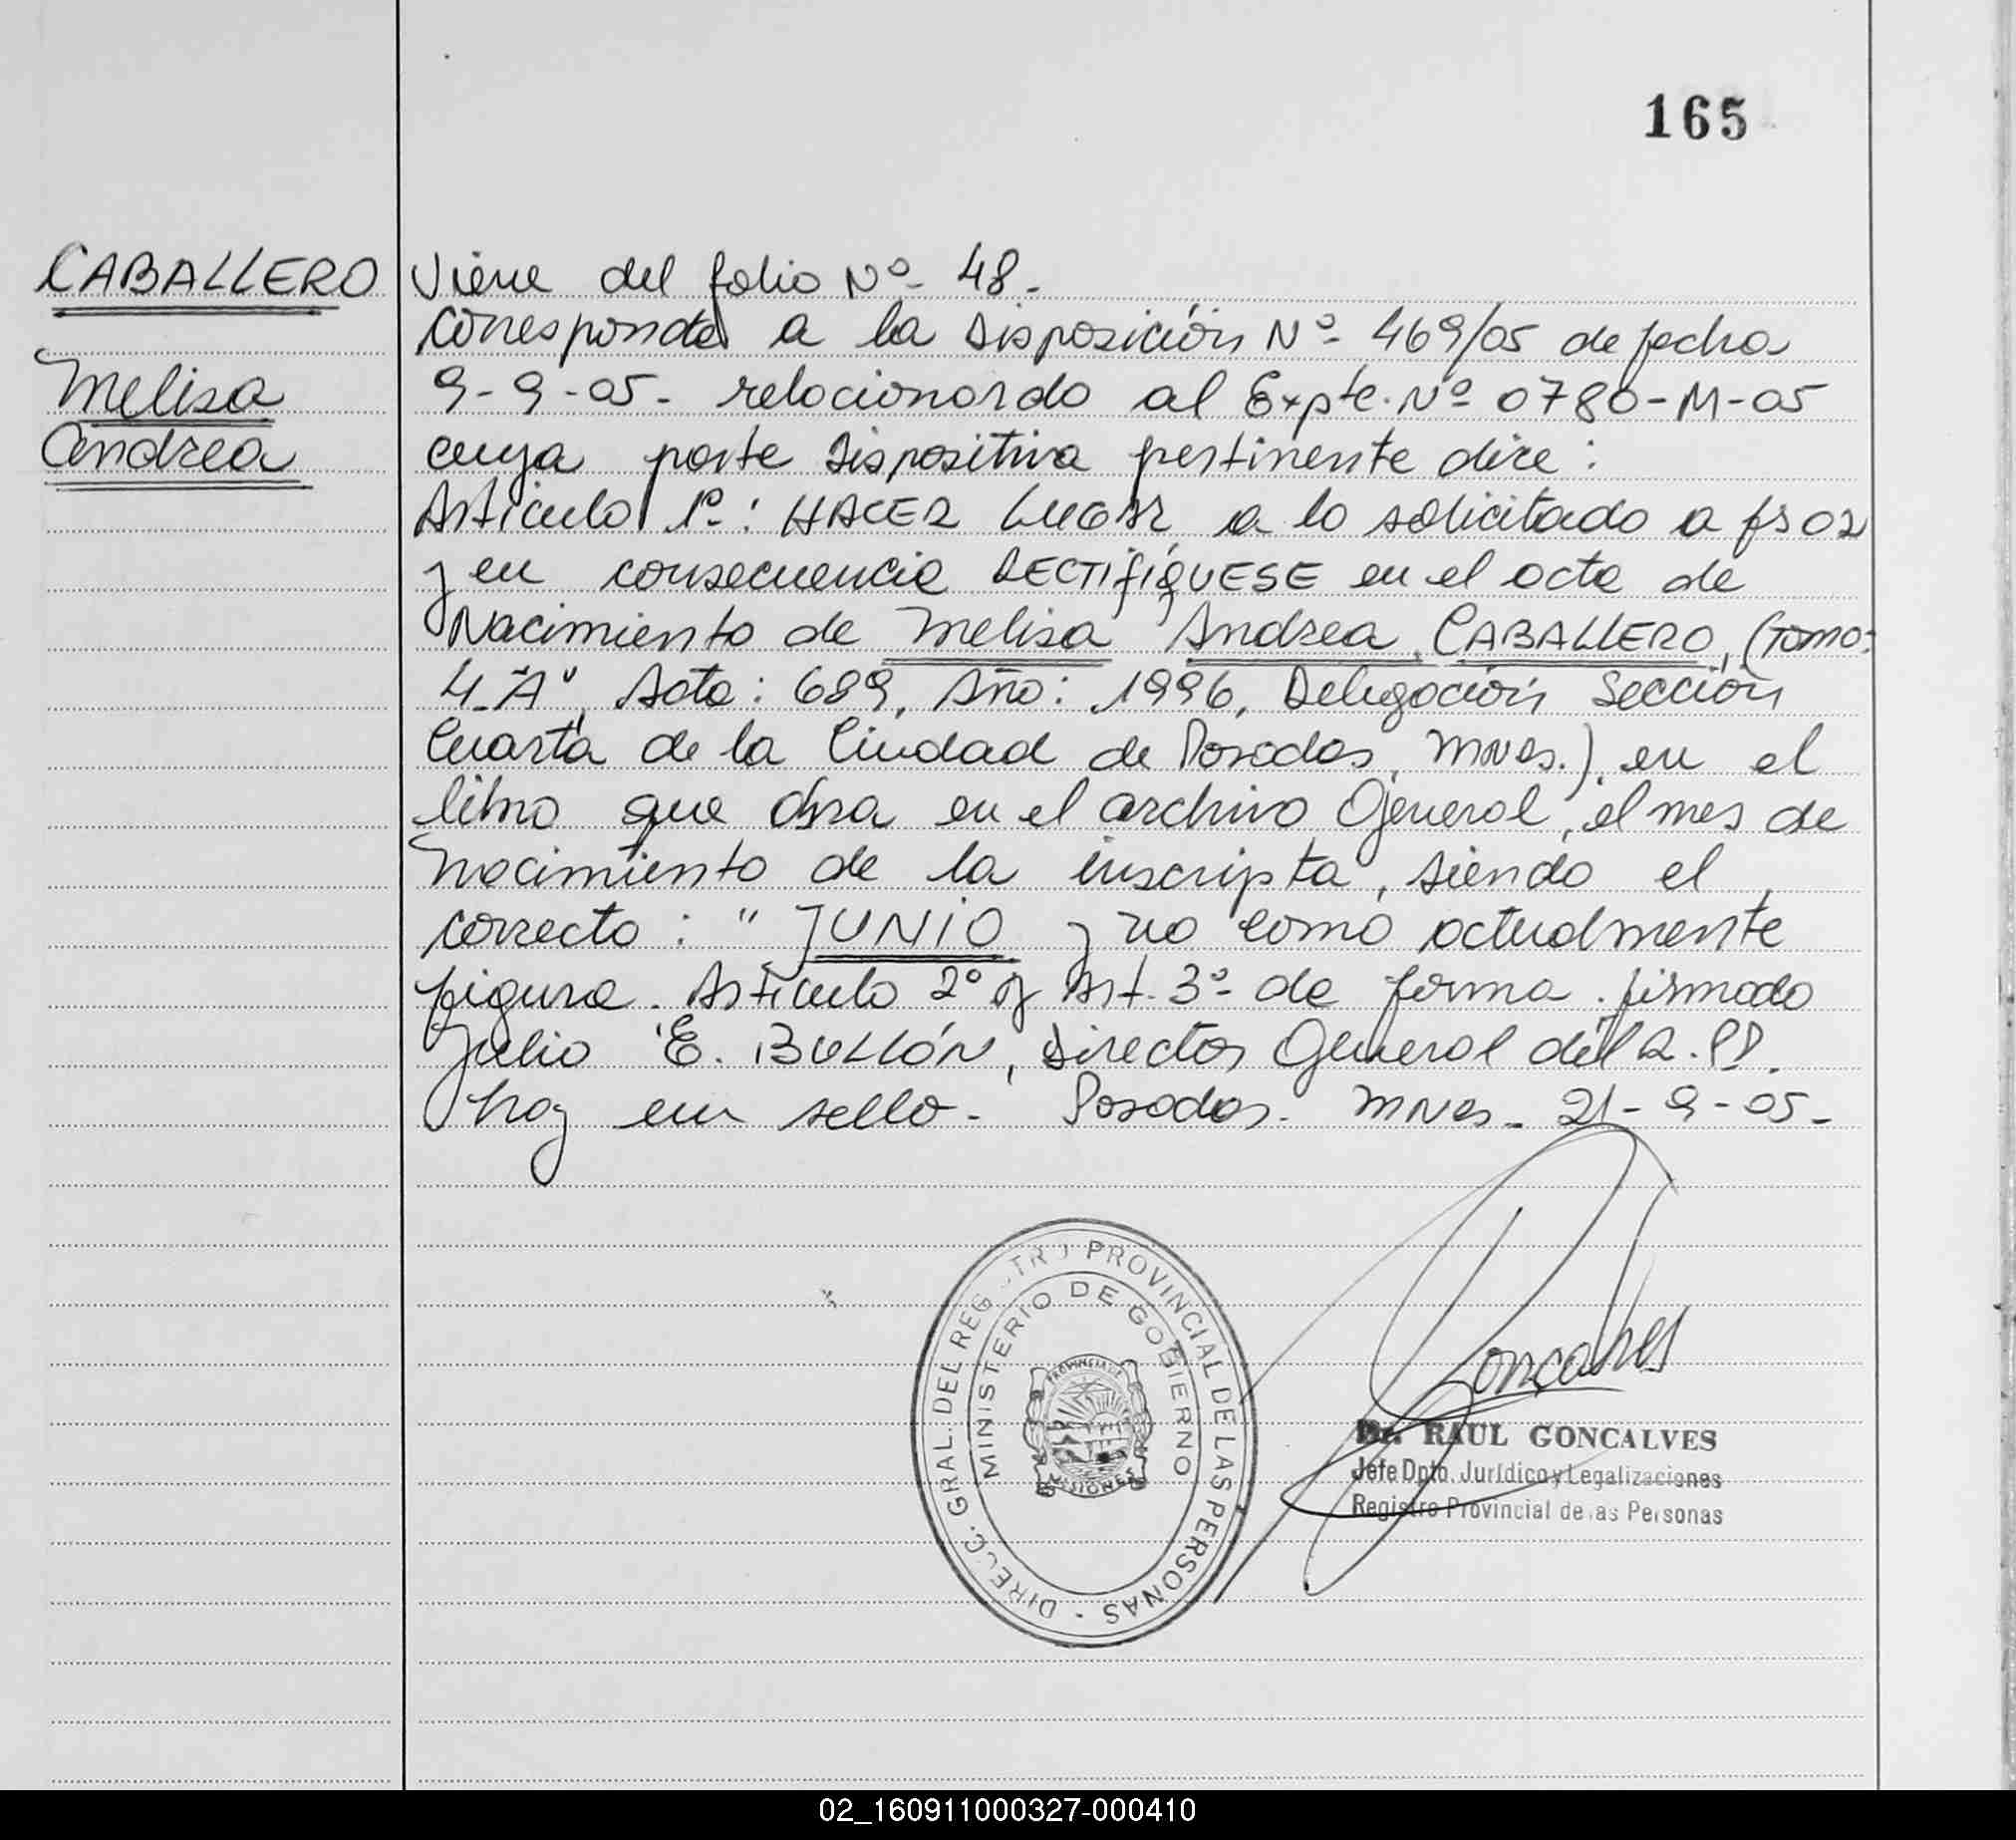 165
CABALLERO
Melisa
Andrea
Viene del folio Nº- 48.-
Corresponde a la Disposición Nº- 469/05 de fecha
9-9-05- relacionando al Expte. Nº 0780-M-05
cuya parte Dispositiva pertinente dice:
Artículo 1º-: HACER LUGAR a lo solicitado a fs 02
y en consecuencia RECTIFÍQUESE en el acta de
Nacimiento de Melisa Andrea CABALLERO, (Tomo:
4-"A", Acta: 689, Año: 1996, Delegación Sección
Cuarta de la Ciudad de Posadas, MNes.), en el
libro que obra en el archivo General, el mes de
nacimiento de la inscripta, siendo el
correcto: "JUNIO y no como actualmente
figura. Artículo 2º y Art. 3º- de forma. firmado
Julio E. BULLÓN, Director General del R.PP.
hay un sello- Posadas- MNes- 21-9-05-
DIRECC. GRAL. DEL REGISTRO PROVINCIAL DE LAS PERSONAS -
MINISTERIO DE GOBIERNO
PROVINCIA DE
MISIONES
Goncalves
Dr. RAUL GONCALVES
Jefe Dpto. Jurídico y Legalizaciones
Registro Provincial de las Personas
02_160911000327-000410